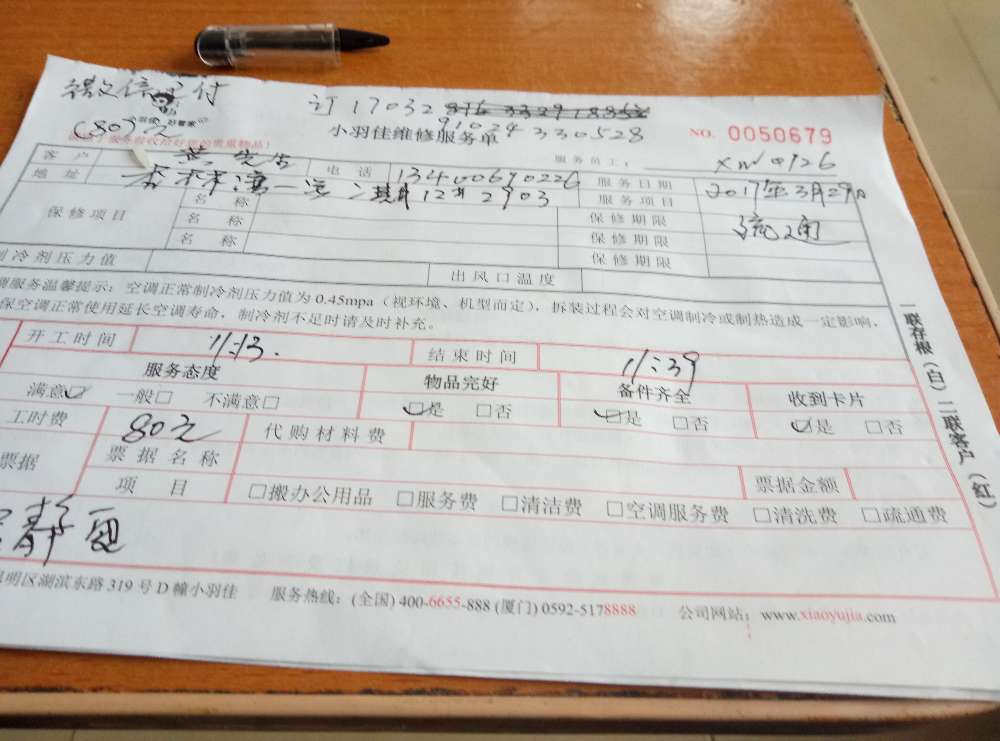 微信支付
(80元)
订17032 876 3329 18852
91024330528
好管家
小羽佳维修服务单
NO. 0050679
服务员工: XM0926
客户 先生 电话 13400690226 服务日期 2017年3月29日
地址 杏林湾一 2903 服务项目 疏通
保修项目 名称 保修期限
名称 保修期限
名称 保修期限
制冷剂压力值 出风口温度
调服务温馨提示:空调正常制冷剂压力值为 0.45mpa(视环境、机型而定),拆装过程会对空调制冷或制热造成一定影响,
保空调正常使用延长空调寿命,制冷剂不足时请及时补充。
开工时间 11:13. 结束时间 11:39
服务态度 物品完好 备件齐全 收到卡片
满意☑ 一般□ 不满意□ ☑是 □否 ☑是 □否 ☑是 □否
工时费 80元 代购材料费
票据 票据名称 票据金额
项目 □搬办公用品 □服务费 □清洁费 □空调服务费 □清洗费 □疏通费
静
明区湖滨东路 319 号 D 幢小羽佳 服务热线:(全国) 400-6655-888 (厦门) 0592-5178888 公司网站:www.xiaoyujia.com
一联存根(白)二联客户(红)